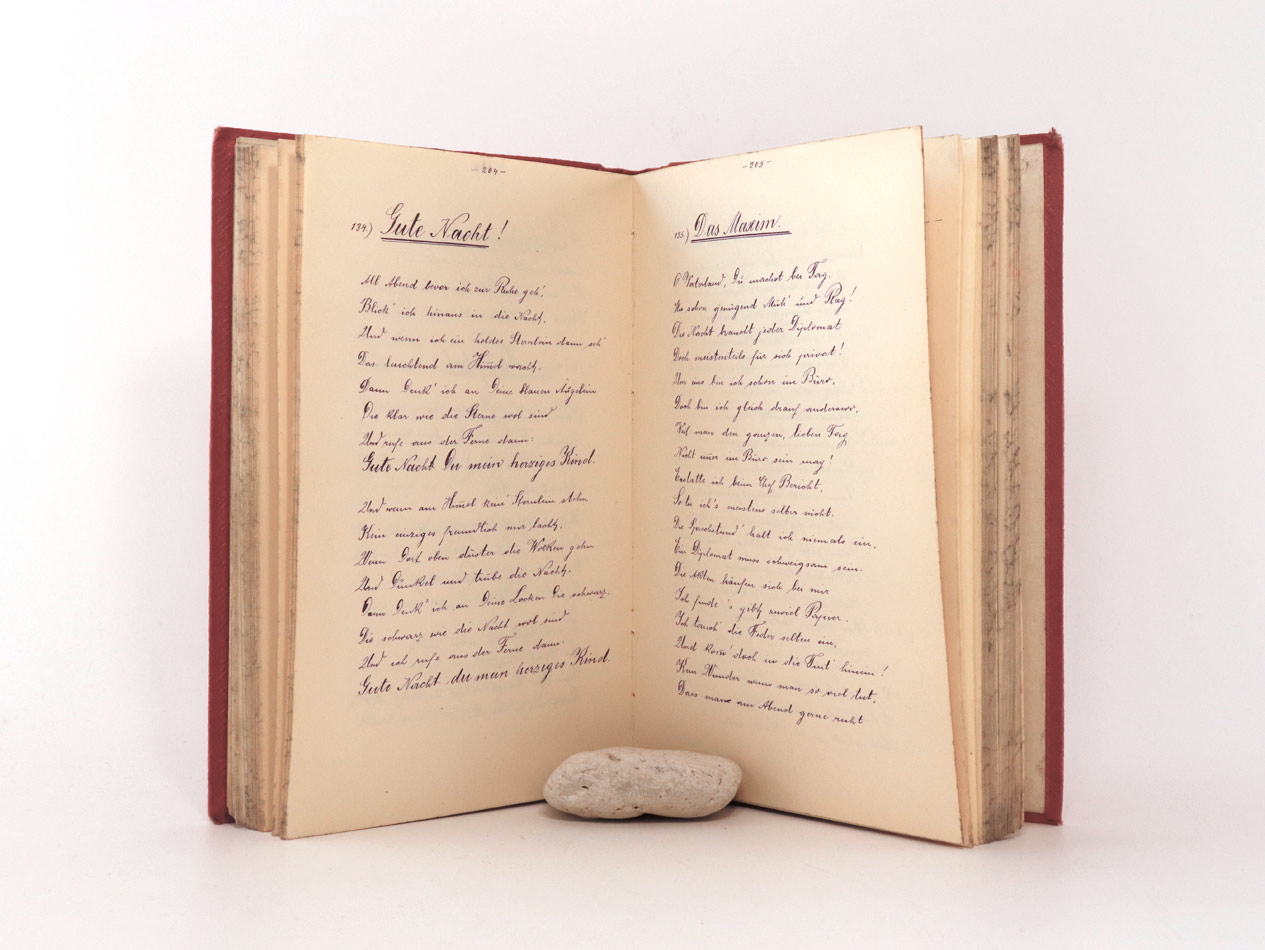 -204-
134.) Gute Nacht!
All Abend bevor ich zur Ruhe geh',
Blick' ich hinaus in die Nacht,
Und wenn ich ein holdes Sternlein dann seh'
Das leuchtend am Himel wacht,
Dann denk' ich an Deine blauen Äugelein
Die klar wie die Sterne wol sind
Und rufe aus der Ferne dann:
Gute Nacht Du mein herziges Kind.
Und wenn am Himel kein' Sternlein stehn
Kein einziges freundlich mir lacht,
Wenn dort oben düster die Wolken gehn
Und dunkel und trübe die Nacht,
Dann denk' ich an Deine Locken die schwarz
Die schwarz wie die Nacht wol sind
Und ich rufe aus der Ferne dann:
Gute Nacht du mein herziges Kind.
-205-
135.) Das Maxim.
O Vaterland, Du machst bei Tag,
Mir schon genügend Müh' und Plag!
Die Nacht braucht jeder Diplomat
Doch meistenteils für sich privat!
Um eins bin ich schon im Büro,
Doch bin ich gleich drauf anderswo,
Weil man den ganzen, lieben Tag
Nicht imer im Büro sein mag!
Erstatte ich beim Chef Bericht,
So tu ich's meistens selber nicht.
Die Sprechstund' halt ich niemals ein,
Ein Diplomat muss schweigsam sein.
Die Akten häufen sich bei mir
Ich finde 's gibt zuviel Papier.
Ich tauch' die Feder selten ein,
Und kom' doch in die Tint' hinein!
Kein Wunder wenn man so viel tut,
Dass man am Abend gerne ruht